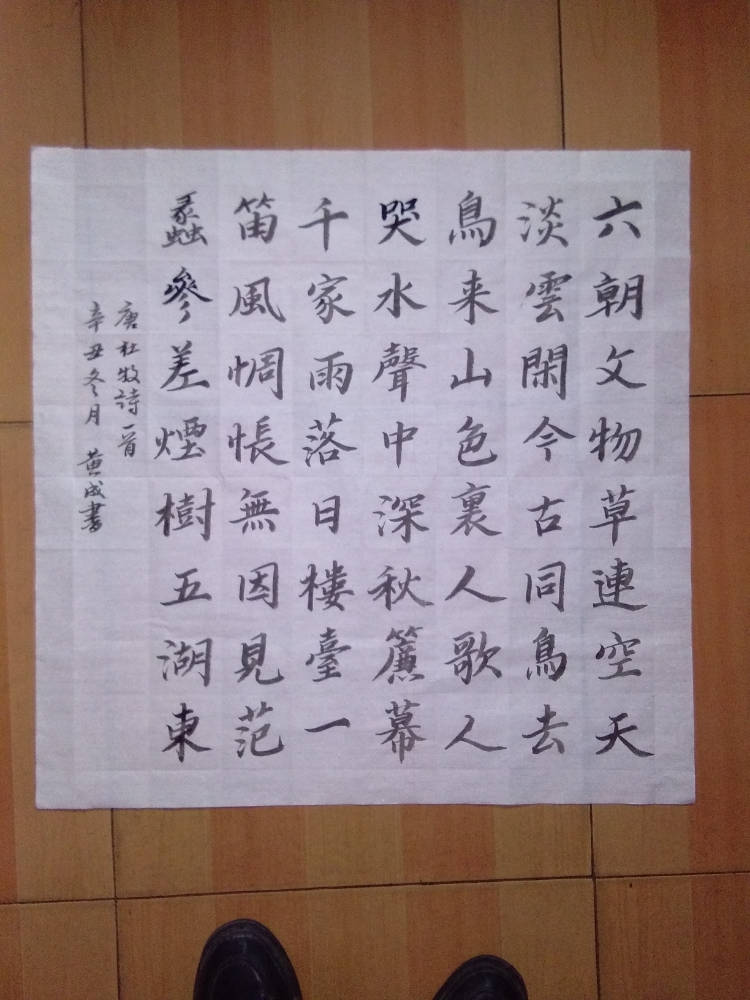 六朝文物草連空天
淡雲閑今古同鳥去
鳥来山色裏人歌人
哭水聲中深秋簾幕
千家雨落日樓臺一
笛風惆悵無因見范
蠡參差煙樹五湖東
唐杜牧詩一首
辛丑冬月 黄成書